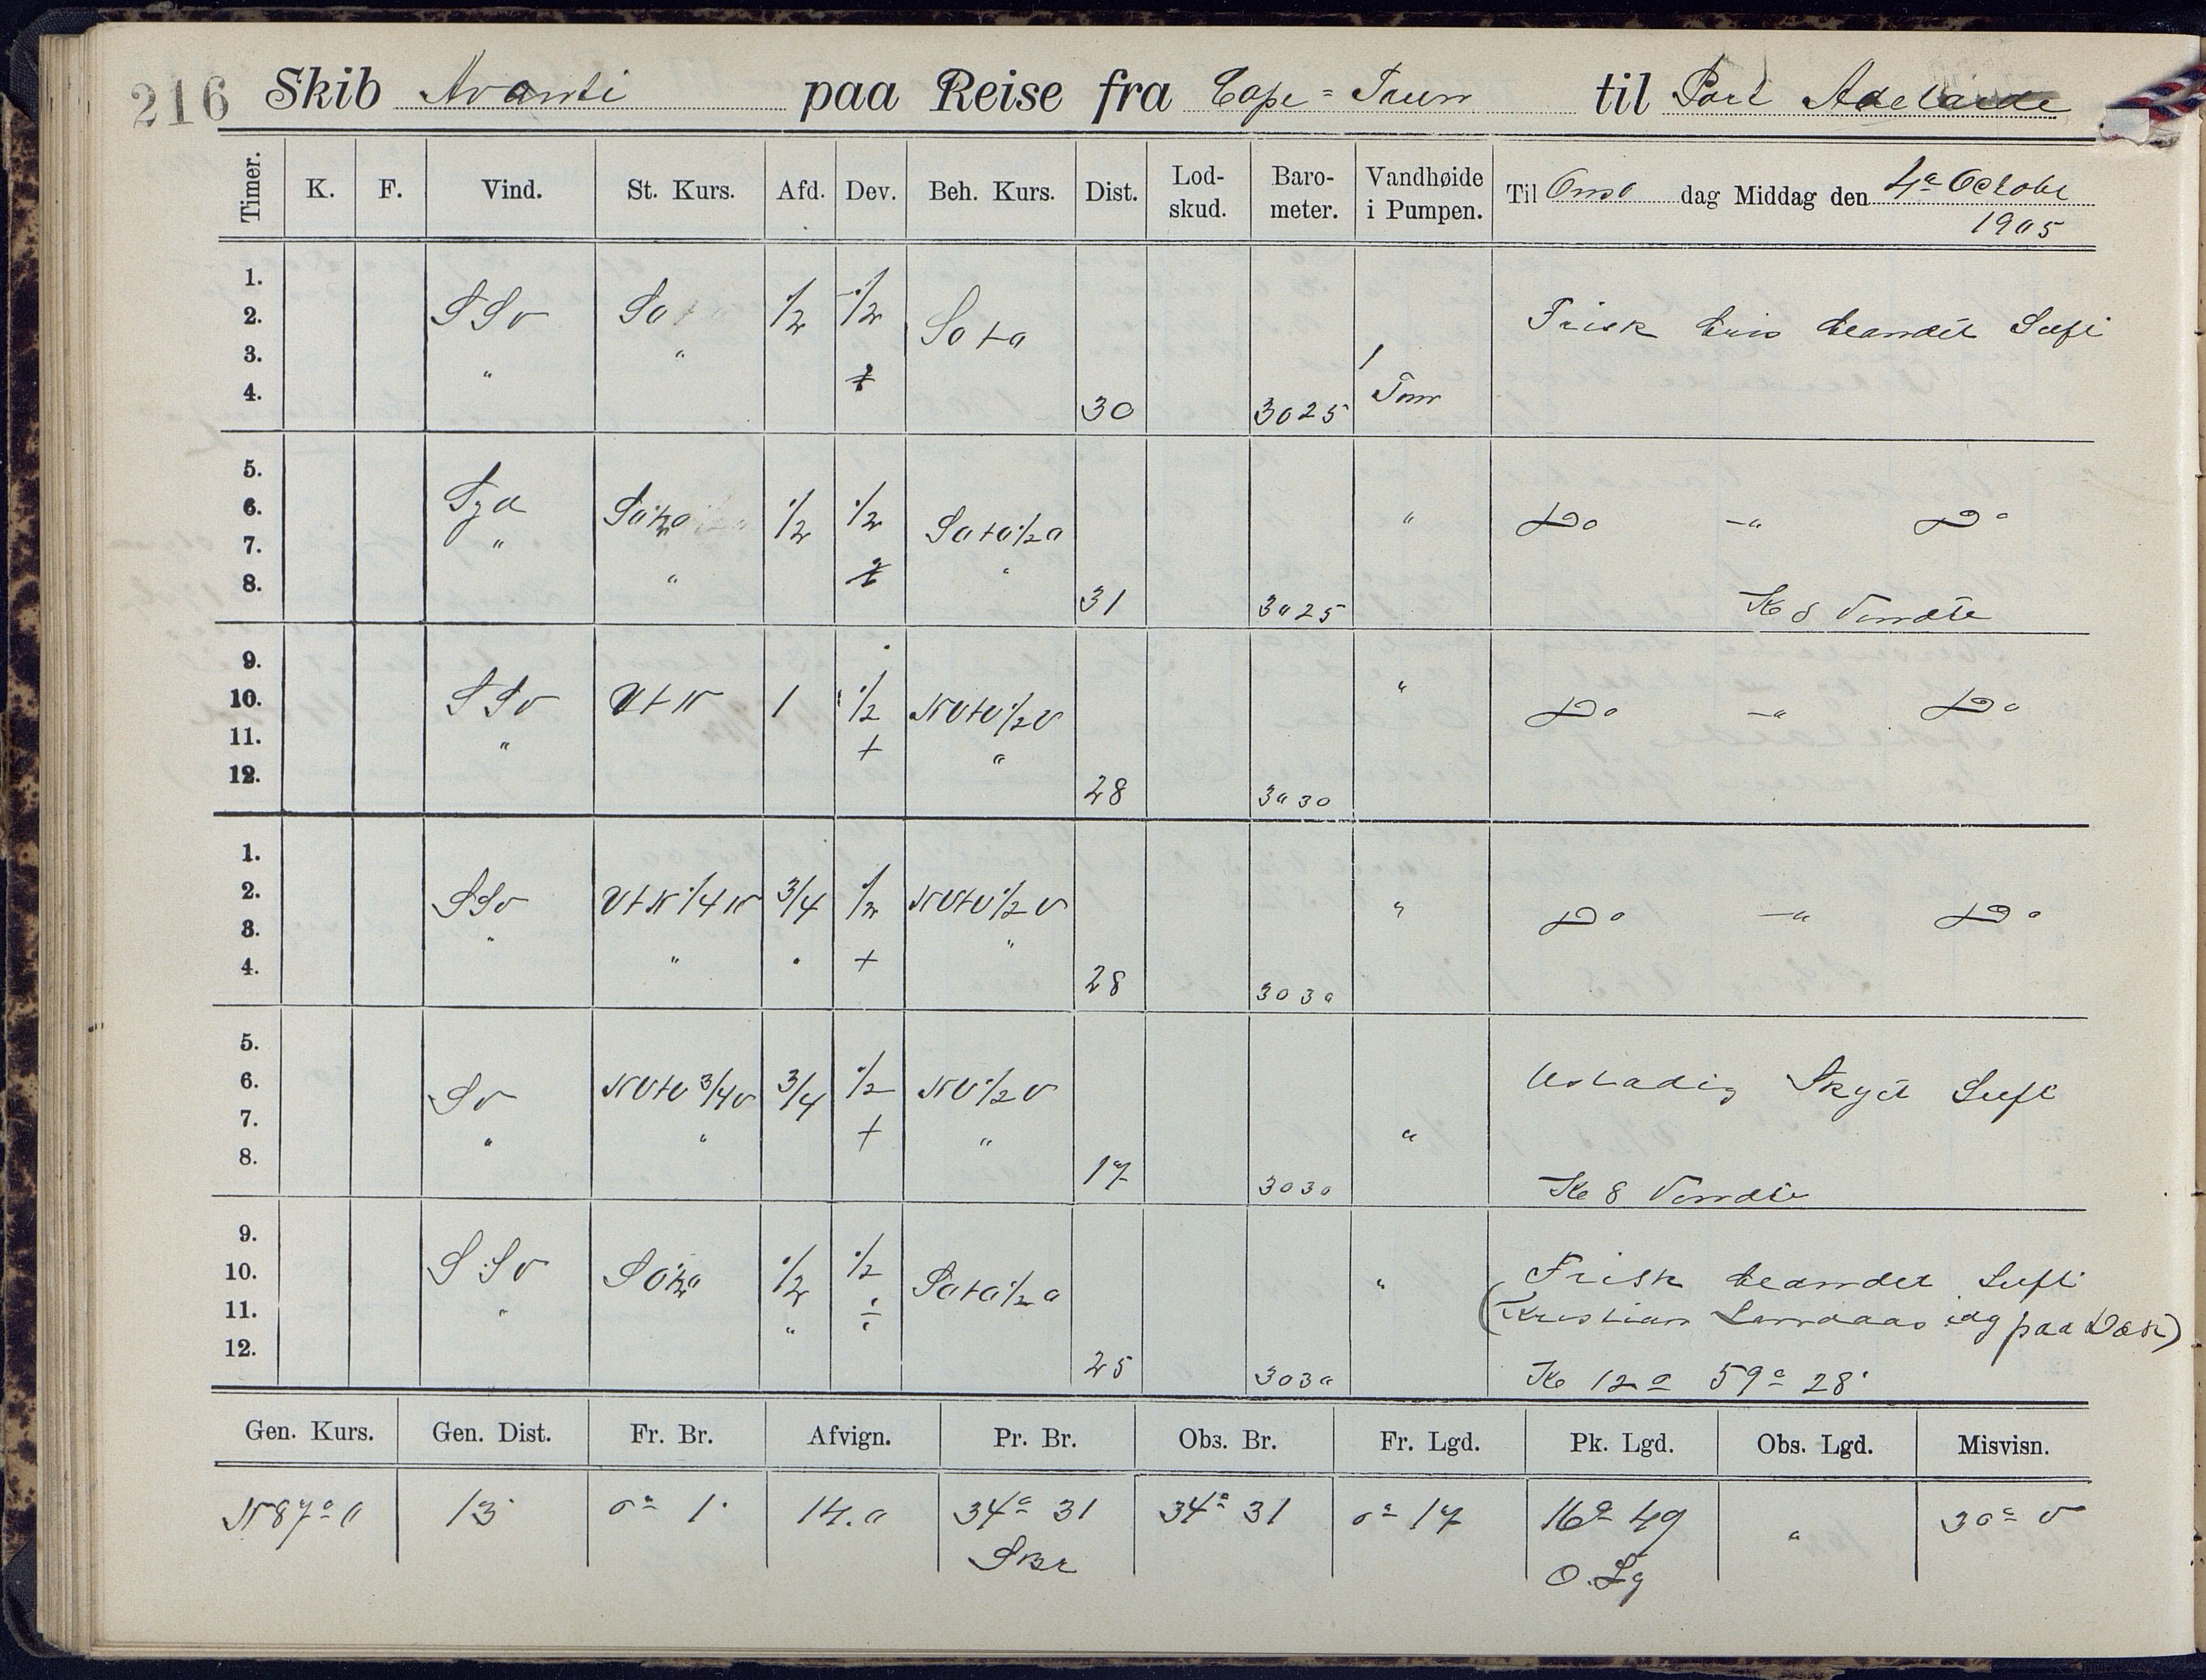 216 Skib Avanti paa Reise fra Cape=Town til Port Adelaide
Timer. K. F. Vind. St. Kurs. Afd. Dev. Beh. Kurs. Dist. Lod-skud. Baro-meter. Vandhøide i Pumpen. Til Onsd dag Middag den 4de October
1905
1.
2. SSv So 1/2 1/2 So t o Frisk bris blandet Luft
3. " " 1
4. 30 3025 Tom
5.
6. Syd So 1/2 o 1/2 1/2 So t o 1/2 o " Do —"— Do
7. " "
8. " 31 3025 Kl 8 Vendte
9.
10. SSv V t N 1 1/2 NV t V 1/2 V " Do —"— Do
11. " + "
12. 28 3030
1.
2. SSv V t N 1/4 N 3/4 1/2 NV t V 1/2 V " Do —"— Do
3. " "
4. " " + 28 3030
5.
6. Sv NV t V 3/4 V 3/4 1/2 NV 1/2 V Ustadig Skyet Luft
7. " " + " "
8. 17 3030 Kl 8 Vendte
9.
10. SSv So 1/2 o 1/2 1/2 So t o 1/2 o " Frisk blandet Luft
11. " " ÷ (Kristian Landaas idag paa Dæk)
12. 25 3030 Kl 12 = 59° 28'
Gen. Kurs. Gen. Dist. Fr. Br. Afvign. Pr. Br. Obs. Br. Fr. Lgd. Pk. Lgd. Obs. Lgd. Misvisn.
N 87° O 13' 0° 1' 14.0 34° 31 34° 31 0° 17 16° 49 " 30° V
S Br O. Lg